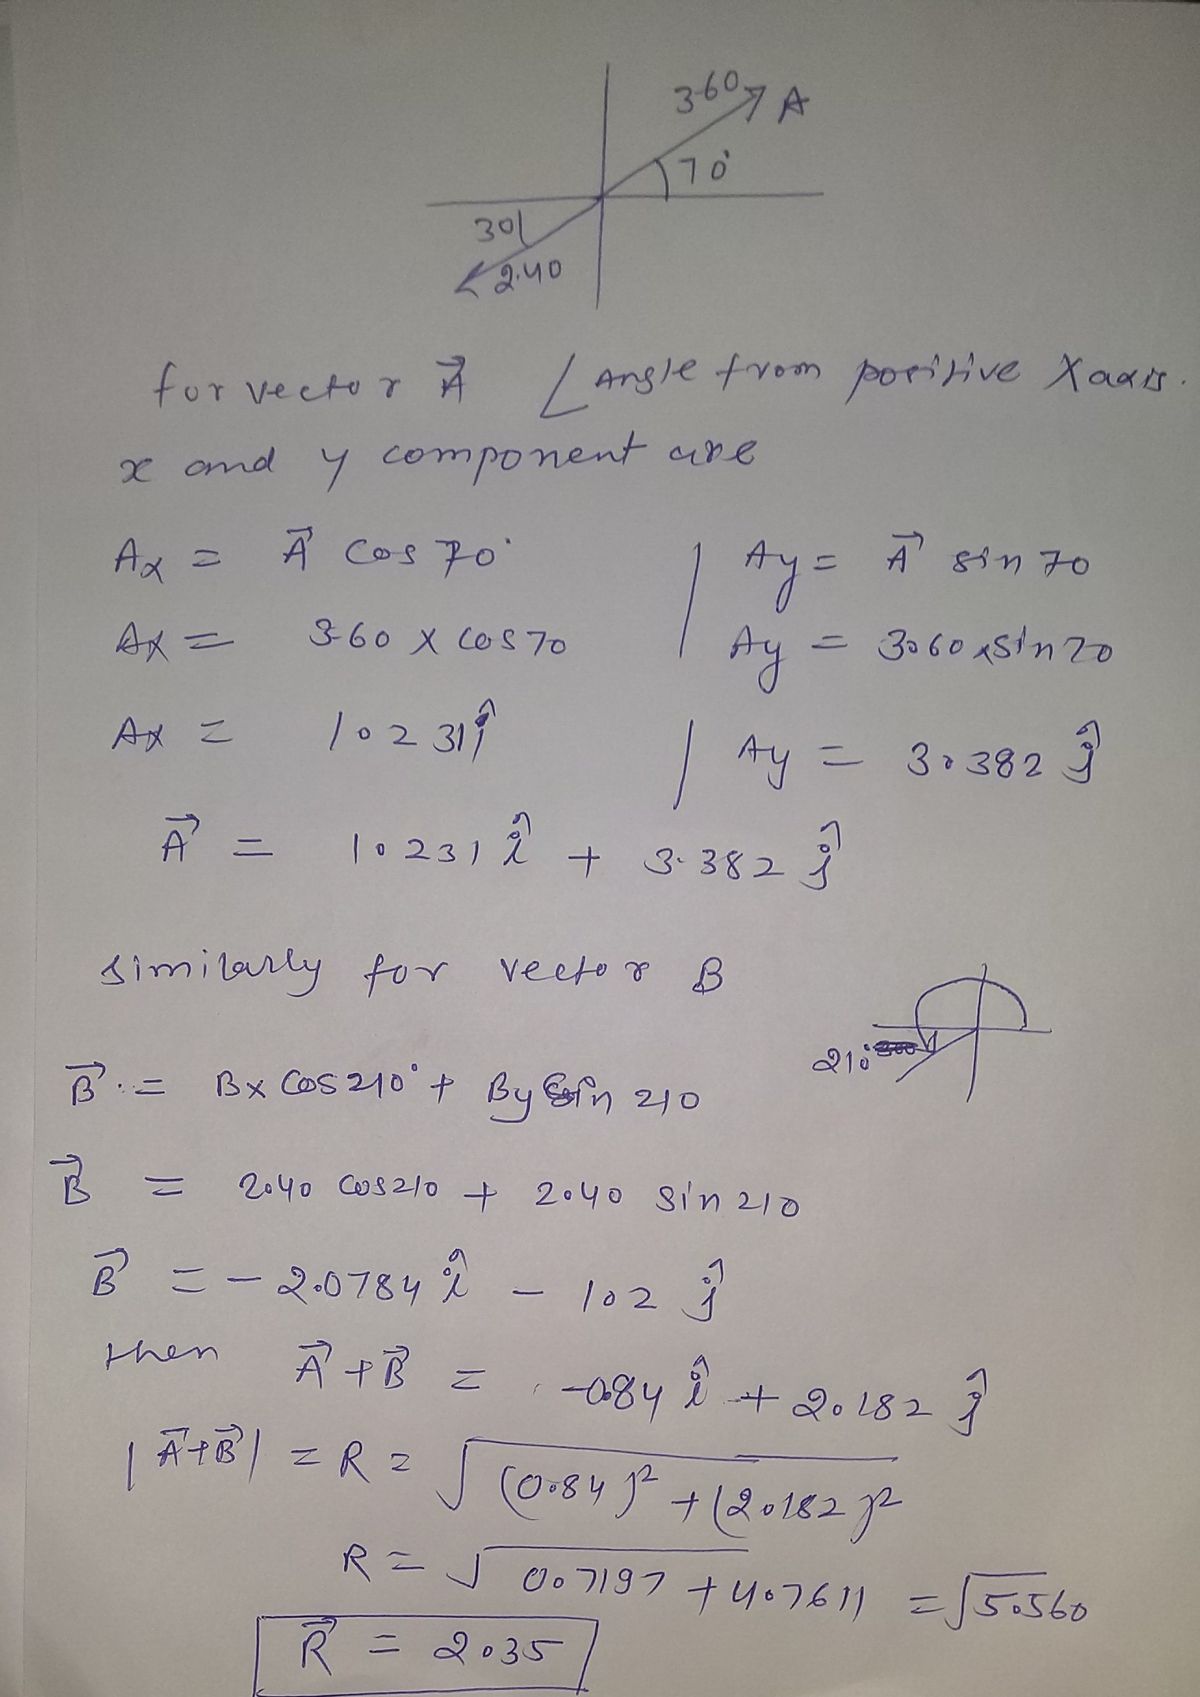 3.60 A
70°
30
2.40
for vector A⃗ ∠ Angle from positive X axis.
x and y component are
Ax = A⃗ cos 70° | Ay = A⃗ sin 70
Ax = 3.60 x cos 70 | Ay = 3.60 x sin 70
Ax = 1.231 î | Ay = 3.382 ĵ
A⃗ = 1.231 î + 3.382 ĵ
similarly for vector B
210°
B⃗ = Bx cos 210° + By sin 210
B⃗ = 2.40 cos 210 + 2.40 sin 210
B⃗ = - 2.0784 î - 1.2 ĵ
then A⃗ + B⃗ = -0.84 î + 2.182 ĵ
|A⃗+B⃗| = R = √(0.84)² + (2.182)²
R = √0.7197 + 4.7611 = √5.560
R⃗ = 2.35